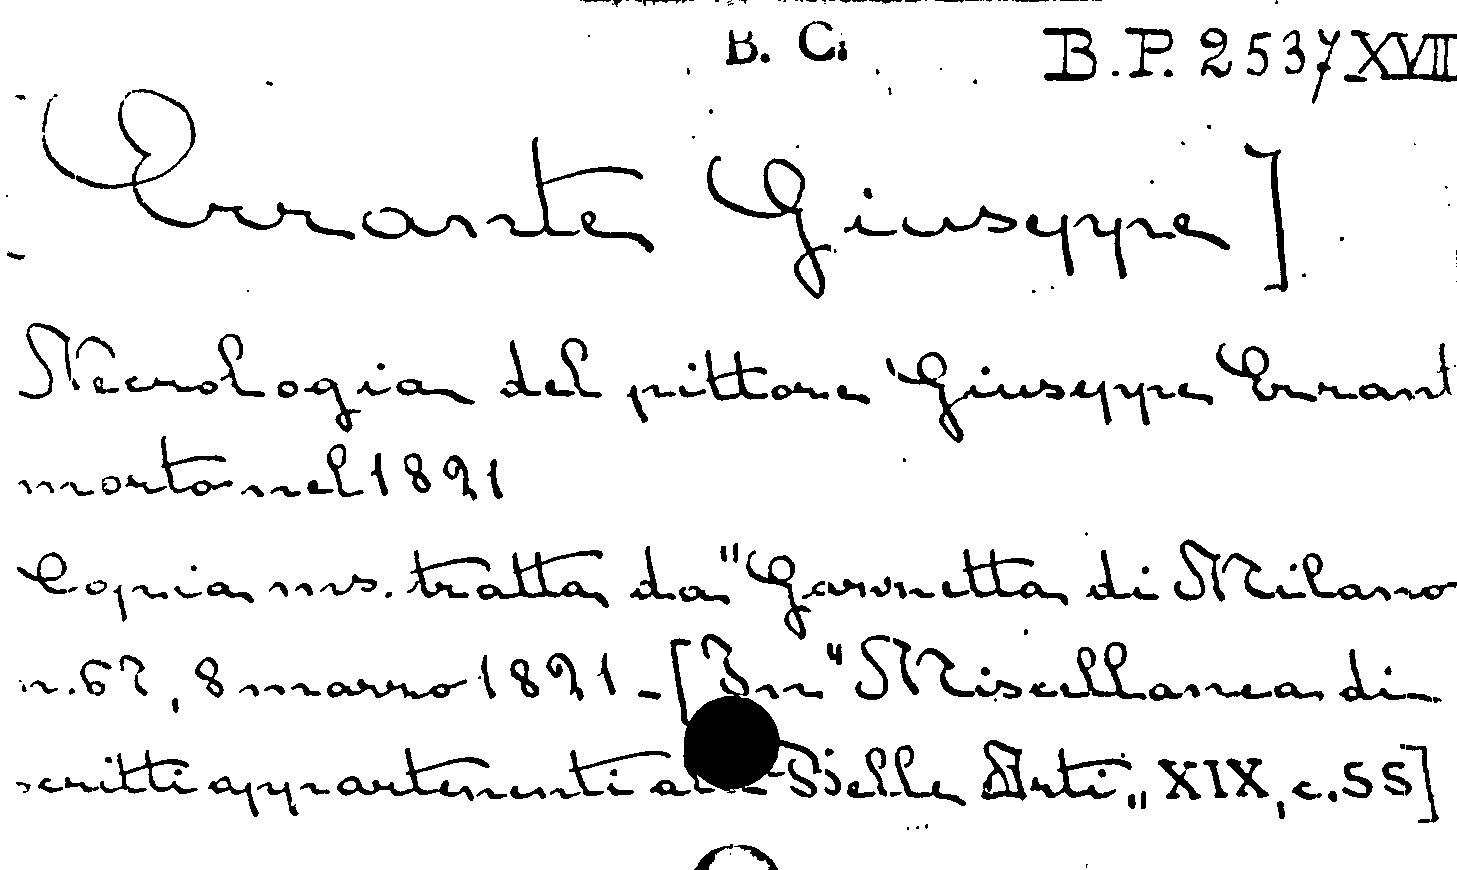 B. C. B.P. 2537 XVII
Errante Giuseppe]
Necrologia del pittore Giuseppe Errant
morto nel 1821
Copia ms. tratta da "Gazzetta di Milano
n. 67, 8 marzo 1821 - [In "Miscellanea di
scritti appartenenti a Belle Arti" XIX, c. 55]